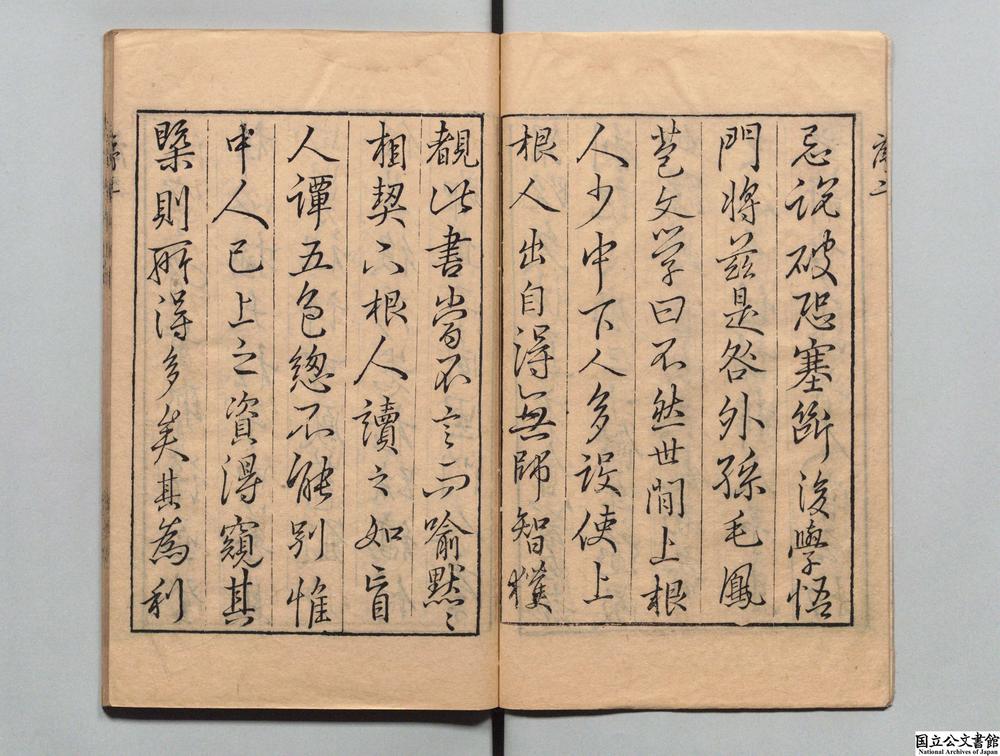 序二
忌説破恐塞斷後學悟
門將茲是咎外孫毛鳳
苞文学曰不然世間上根
人少中下人多設使上
根人出自得無師智獲
覩此書當不言而喻默〻
相契下根人讀之如盲
人譚五色總不能別惟
中人已上之資得窺其
槩則所得多矣其為利
国立公文書館
National Archives of Japan